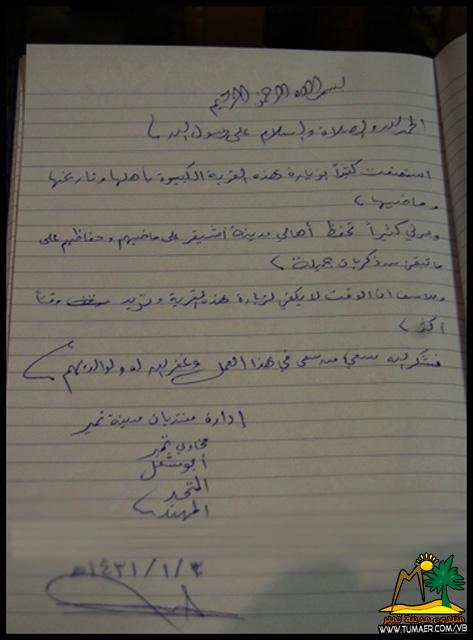 بسم الله الرحمن الرحيم
الحمد لله والصلاة والسلام على رسول الله
استمتعت كثيراً بزيارة هذه القرية الكبيرة بأهلها وتاريخها
وماضيها
وسرني كثيراً تحفظ أهالي مدينة أشيقر على ماضيهم وحفاظهم على
ما تبقى من ذكريات جميلة
وللاسف ان الوقت لا يكفي لزيارة هذه القرية ونريد وقتاً
اكثر
فشكر الله سعي من سعى في هذا العمل وغفر الله له ولوالديهم
إدارة منتديات مدينة تمير
محاوي تمير
أبو مشعل
المتحد
المهند
١٤٣١/١/٣هـ
منتدى مدينة تمير
WWW.TUMAER.COM/VB